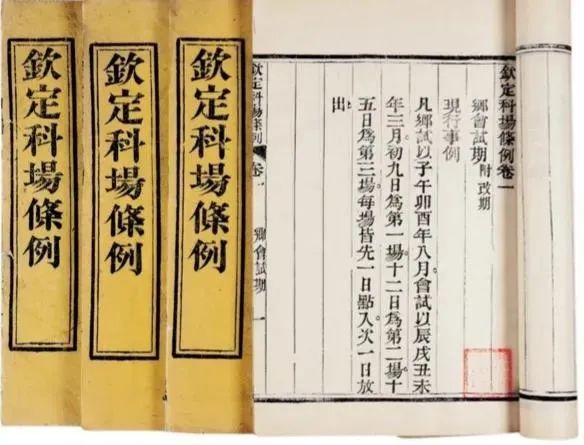 欽定科場條例
欽定科場條例
欽定科場條例
欽定科場條例卷一
鄉會試期 附改期
現行事例
凡鄉試以子午卯酉年八月會試以辰戌丑未
年三月初九日爲第一場十二日爲第二場十
五日爲第三場每場皆先一日點入次一日放
出
欽定科場條例 卷一 鄉會試期 一